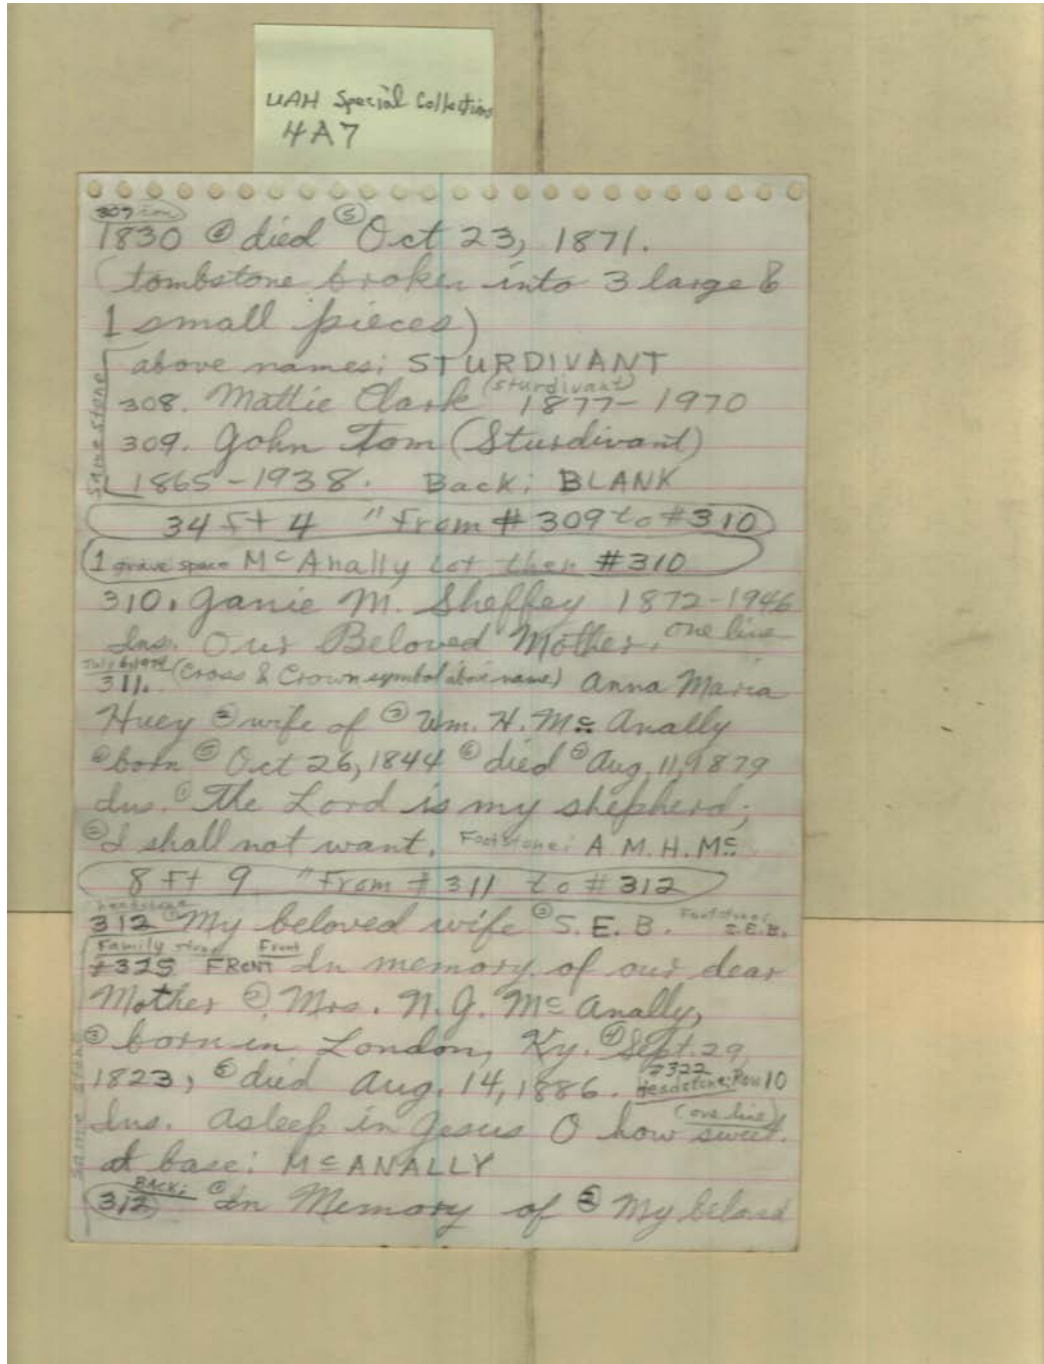 UAH Special Collections
4A7
1830 ④ died ⑤ Oct 23, 1871.
(tombstone broken into 3 large &
1 small pieces)
above names: STURDIVANT
same stone
308. Mattie Clark (Sturdivant) 1877-1970
309. John Tom (Sturdivant)
1865-1938. Back: BLANK
34 Ft 4 " From # 309 to #310
1 grave space McAnally Lot then #310
310. Janie M. Sheffey 1872-1946
Ins. Our Beloved Mother. one line
July 6, 1974
311. (Cross & Crown symbol above name) Anna Maria
Huey ② wife of ③ Wm. H. Mc Anally
④ born ⑤ Oct 26, 1844 ⑥ died ⑦ Aug. 11, 1879
Ins. ① The Lord is my shepherd;
② I shall not want. Footstone: A M. H. Mc
8 Ft 9 " From # 311 to # 312
headstone
312 ① My beloved wife ② S. E. B. Footstone: S.E.B.
Family stone Front
#325 FRONT In memory of our dear
Mother ② Mrs. N. J. Mc Anally,
③ born in London, Ky. ④ Sept. 29,
1823, ⑤ died Aug. 14, 1886. #322 Headstone: Row 10
Ins. Asleep in Jesus O how sweet. (one line)
same stone
at base: McANALLY
BACK:
312 ① In Memory of ② My beloved